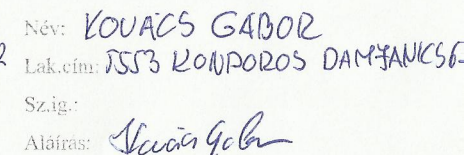 Név: KOVÁCS GÁBOR
Lak.cím: 5553 KONDOROS DAMJANICS
Sz.ig.:
Aláírás: Kovács Gábor